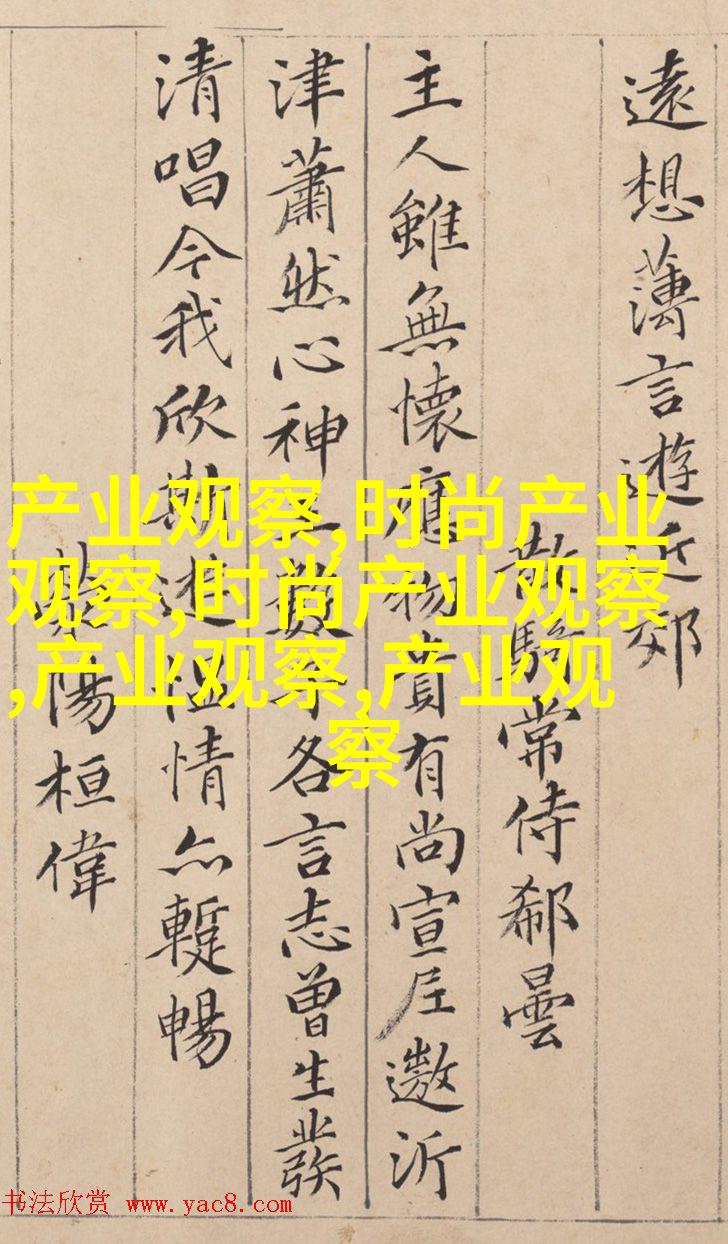 遠想薄言遊近郊
散騎常侍郗曇
主人雖無懷應物貴有尚宣尼遨沂
津蕭然心神王數子各言志曾生發
清唱今我欣斯遊慍情亦蹔暢
陽桓偉
产业观察,时尚产业
观察,时尚产业观察
,产业观察,产业观
察
书法欣赏 www.yac8.com